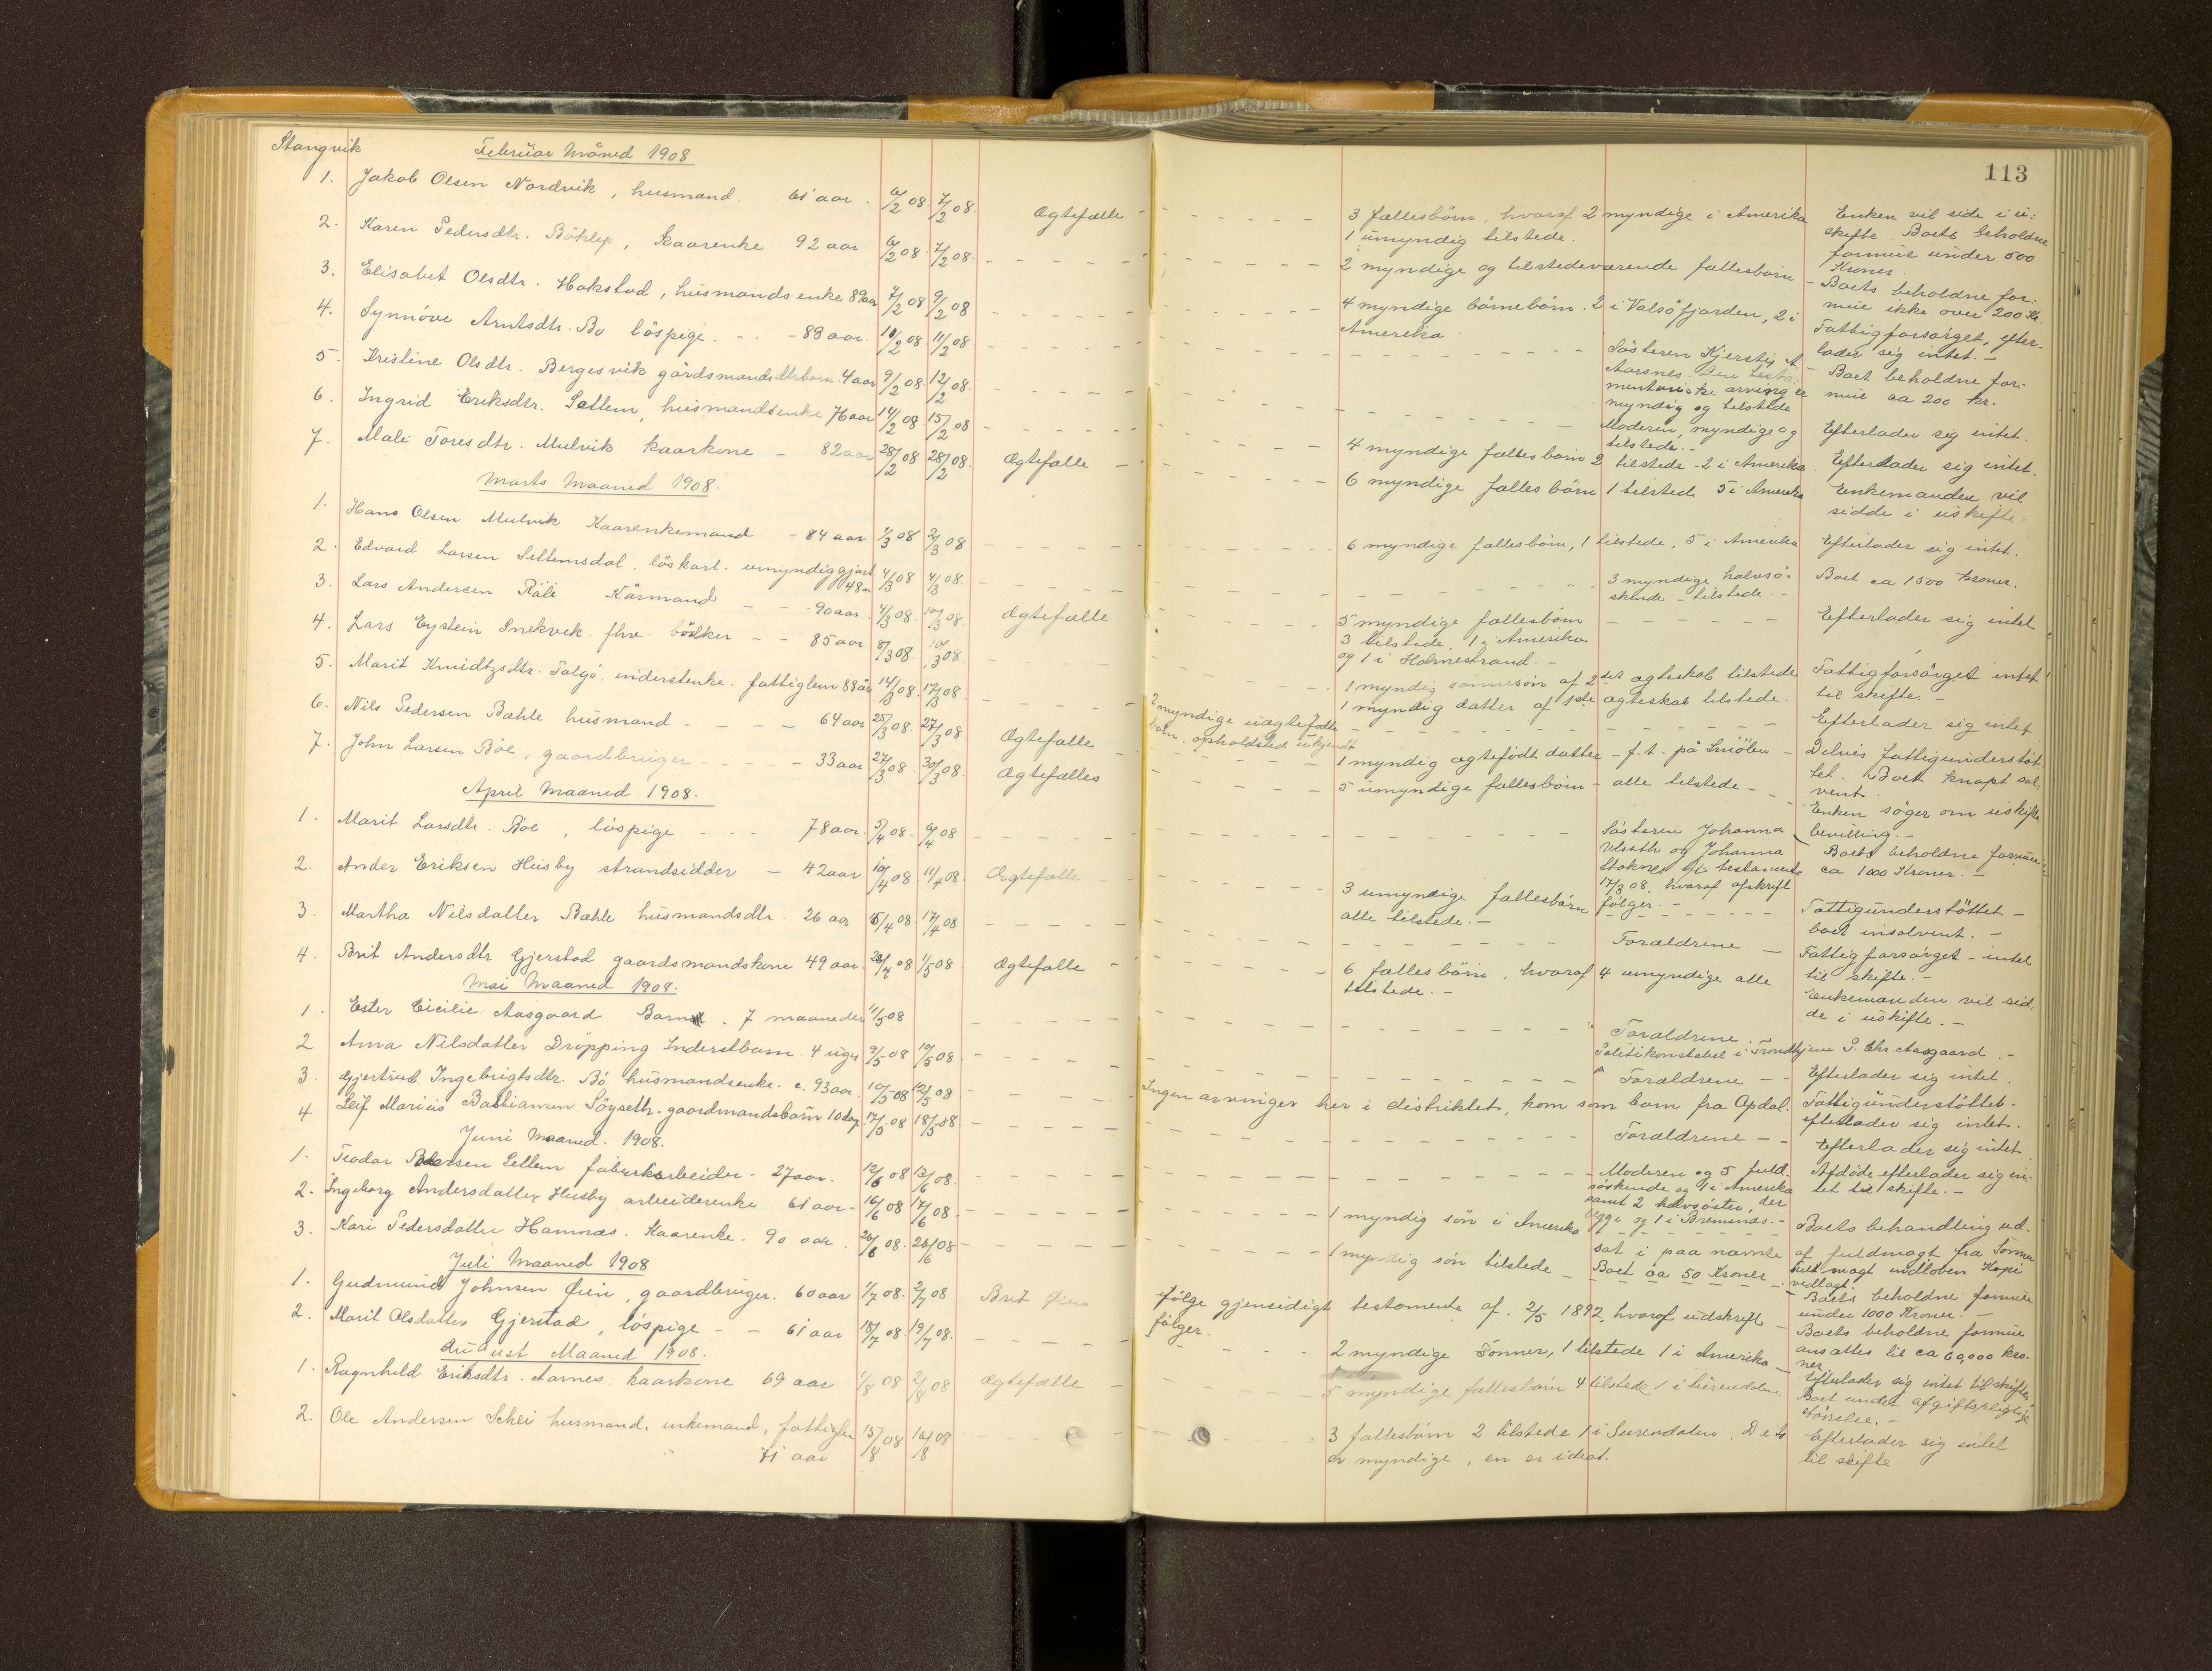 Stangvik Februar Måned 1908
113
1. Jakob Olsen Nordvik, husmand. 61 aar. 6/2 08. 7/2 08. Ægtefælle - 3 fællesbörn, hvoraf 2 myndige i Amerika Enken vil side i u:
1 umyndig tilstede. skifte. Boets beholdne
formue under 500
Kroner.
2. Karen Pedersdtr. Böklep, Kaarenke 92 aar 6/2 08. 7/2 08. 2 myndige og tilstedeværende fællesbörn - Boets beholdne for:
mue ikke over 200 Kr.
3. Elisabet Olsdtr. Hakstad, husmandsenke 89 aar 7/2 08 9/2 08 4 myndige börnebörn. 2 i Valsöfjorden, 2 i Fattigforsörget, efter-
Amerika. lader sig intet. -
4. Synnöve Arntsdtr. Bo löspige. - - 88 aar. 10/2 08. 11/2 08. Sösteren Kjersti A - Boet beholdne for-
Aarsnes. Den testa- mue ca 200 kr.
mentariske arving er
myndig og tilstede
5. Kristine Olsdtr. Bergesvik gårdsmandsdtr barn. 4 aar 9/2 08. 12/2 08. Moderen, myndige og Efterlader sig intet.
tilstede. -
6. Ingrid Eriksdtr. Settem, husmandsenke 76 aar 14/2 08 15/2 08 4 myndige fællesbörn 2 tilstede - 2 i Amerika. Efterlader sig intet.
7. Mali Toresdtr. Mulvik kaarkone - 82 aar 28/2 08 28/2 08. Ægtefælle - 6 myndige fællesbörn 1 tilstede 5 i Amerika Enkemanden vil
sidde i uskifte.
Marts Maaned 1908.
1. Hans Olsen Mulvik Kaarenkemand - 84 aar 1/3 08 2/3 08 6 myndige fællesbörn, 1 tilstede, 5 i Amerika Efterlader sig intet.
2. Edvard Larsen Settemsdal. löskarl. umyndiggjort 4/3 08 4/3 08. 3 myndige halvsö- Boet ca 1500 Kroner.
48 aar skende - tilstede. -
3. Lars Andersen Kårmand - - 90 aar. 4/3 08. 10/3 08. Ægtefælle 5 myndige fællesbörn Efterlader sig intet
3 tilstede, 1 i Amerika
og 1 i Holmestrand. -
4. Lars Eystein Snekvik. fhv. bödker - - 85 aar 8/3 08. 10/3 08. 1 myndig sönnesön af 2det ægteskab tilstede Fattigforsörget intet
1 myndig datter af 1ste ægteskab tilstede. til skifte. -
5. Marit Knudtzsdtr. Talgö. inderstenke. fattiglem 88 år 14/3 08. 17/3 08. 2 myndige uægtefödte Efterlader sig intet
börn. opholdsted ukjendt
6. Nils Pedersen Bæhle husmand - - - - 64 aar 25/3 08. 27/3 08. Ægtefælle 1 myndig ægtefödt datter - f.t. på Smölen - Delvis fattigunderstöt-
tet. Boet knapt sol-
vent
7. John Larsen Böe, gaardbruger - - - - 33 aar 27/3 08. 30/3 08. Ægtefælles 5 umyndige fællesbörn - alle tilstede - - Enken söger om uskifte
bevilling. -
April Maaned 1908.
1. Marit Larsdtr. Böe, löspige - - - 78 aar. 5/4 08. 6/4 08 Sösteren Johanna Boets beholdne formue
Ulseth og Johanna ca 1000 Kroner. -
Stoknes ift testamente
17/3 08, hvoraf afskrift
fölger. -
2. Ander Eriksen Husby strandsidder - 42 aar 10/4 08. 11/4 08. Ægtefælle - 3 umyndige fællesbörn Fattigunderstöttet -
alle tilstede. - boet insolvent. -
3. Martha Nilsdatter Bæhle husmandsdtr. 26 aar 15/4 08 17/4 08 Forældrene - Fattigforsörget - intet
til skifte. -
4. Brit Andersdtr Gjerstad gaardsmandskone 49 aar. 26/4 08 1/5 08 Ægtefælle - 6 fællesbörn, hvoraf 4 umyndige alle Enkemanden vil sid-
tilstede. - de i uskifte. -
Mai Maaned 1908.
1. Ester Cicilie Aasgaard Barn. 7 maaneder 11/5 08 Forældrene
Politikonstabel i Trondhjem P. Chr. Aasgaard. -
2 Anna Nilsdatter Dröpping Inderstbarn. 4 uger 9/5 08 10/5 08. Forældrene - - Efterlader sig intet.
3. Gjertrud Ingebrigtsdtr. Bö husmandsenke. c. 93 aar. 10/5 08 12/5 08 Ingen arvinger her i distriktet, kom som barn fra Opdal. Fattigunderstöttet -
efterlader sig intet.
4. Leif Marius Bastiansen Söyseth. gaardmandsbarn 10 dage 17/5 08 18/5 08 Forældrene - - Efterlader sig intet
Juni Maaned. 1908.
1. Teodor Pedersen Settem fabrikarbeider. 27 aar. 12/6 08 13/6 08. - Moderen og 5 fuld- Afdöde efterlader sig in-
söskende og 1 i Amerika tet til skifte. -
samt 2 halvsöstre, der
og 1 i Bremsnes. -
2. Ingeborg Andersdatter Husby arbeiderenke 61 aar - 16/6 08 17/6 08. 1 myndig sön i Amerika Boets behandling ud-
sat i paa nævnte af fuldmagt fra Sönnen
fuldmagt indloben Kopi
vedlagt.
3. Kari Pedersdatter Hamnæs. Kaarenke. 90 aar. 26/6 08. 26/6 08 1 myndig sön tilstede - Boet ca 50 Kroner -
Juli Maaned 1908
1. Gudmund Johnsen Öien, gaardbruger. 60 aar 1/7 08. 2/7 08 Brit Öien ifölge gjensidigt testamente af. 2/5 1892, hvoraf udskrift - Boets beholdne formue
fölger. under 1000 Kroner. -
2. Marit Olsdatter Gjerstad, löspige - - 61 aar 18/7 08. 19/7 08. 2 myndige Sönner, 1 tilstede 1 i Amerika Boets beholdne formue
ansættes til ca 60,000 kro-
ner
August Maaned 1908.
1. Ragnhild Eriksdtr. Aarnes. kaarkone 69 aar 1/8 08 2/8 08 Ægtefælle - 5 myndige fællesbörn 4 tilstede 1 i Surendalen Efterlader sig intet til skifte
Boet under afgiftspligtig
störrelse. -
2. Ole Andersen Schei husmand. enkemand, fattiglem 13/8 08 16/8 08 3 fællesbörn 2 tilstede 1 i Surendalen. De to Efterlader sig intet
71 aar er myndige, en er idiot. til skifte